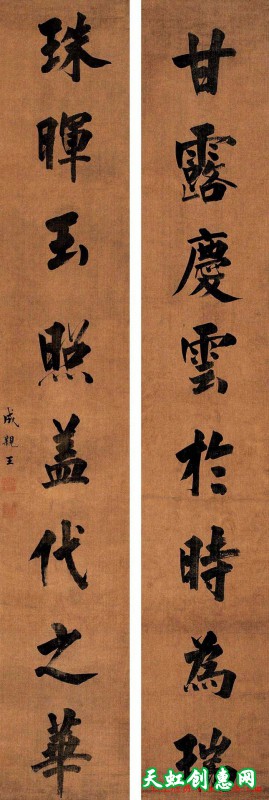 甘露慶雲於時為瑞
珠暉玉照盖代之華
成親王
天虹创惠网